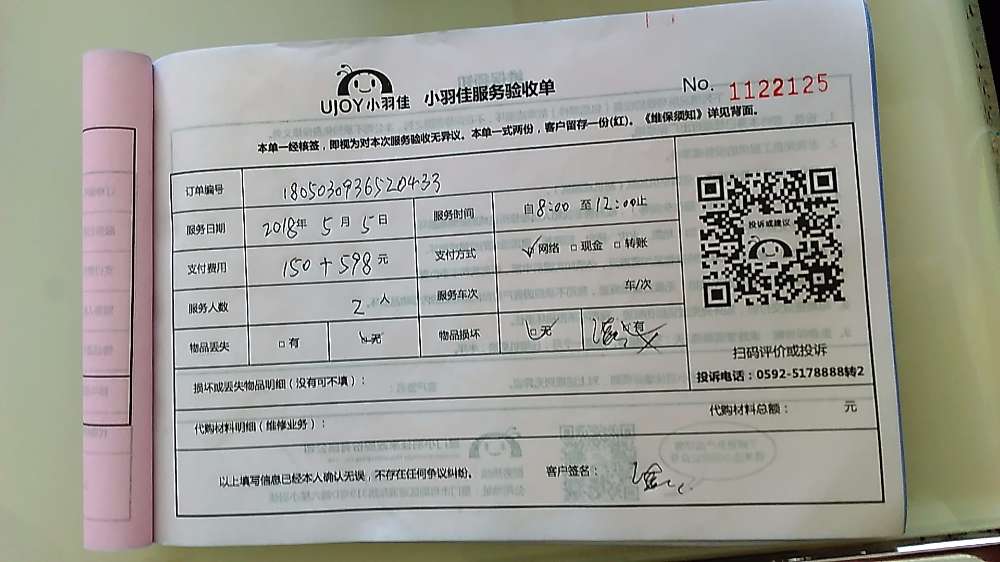 UJOY小羽佳 小羽佳服务验收单 No. 1122125
本单一经核签，即视为对本次服务验收无异议。本单一式两份，客户留存一份(红)。《维保须知》详见背面。
订单编号 1805030936520433
服务日期 2018年 5月 5日 服务时间 自8:00 至12:00止
支付费用 150+598元 支付方式 ☑网络 □现金 □转账
服务人数 2人 服务车次 车/次
物品丢失 □有 ☑无 物品损坏 ☑无 ☑有
投诉或建议
扫码评价或投诉
投诉电话：0592-5178888转2
损坏或丢失物品明细（没有可不填）：
代购材料明细（维修业务）： 代购材料总额： 元
以上填写信息已经本人确认无误，不存在任何争议纠纷。 客户签名：